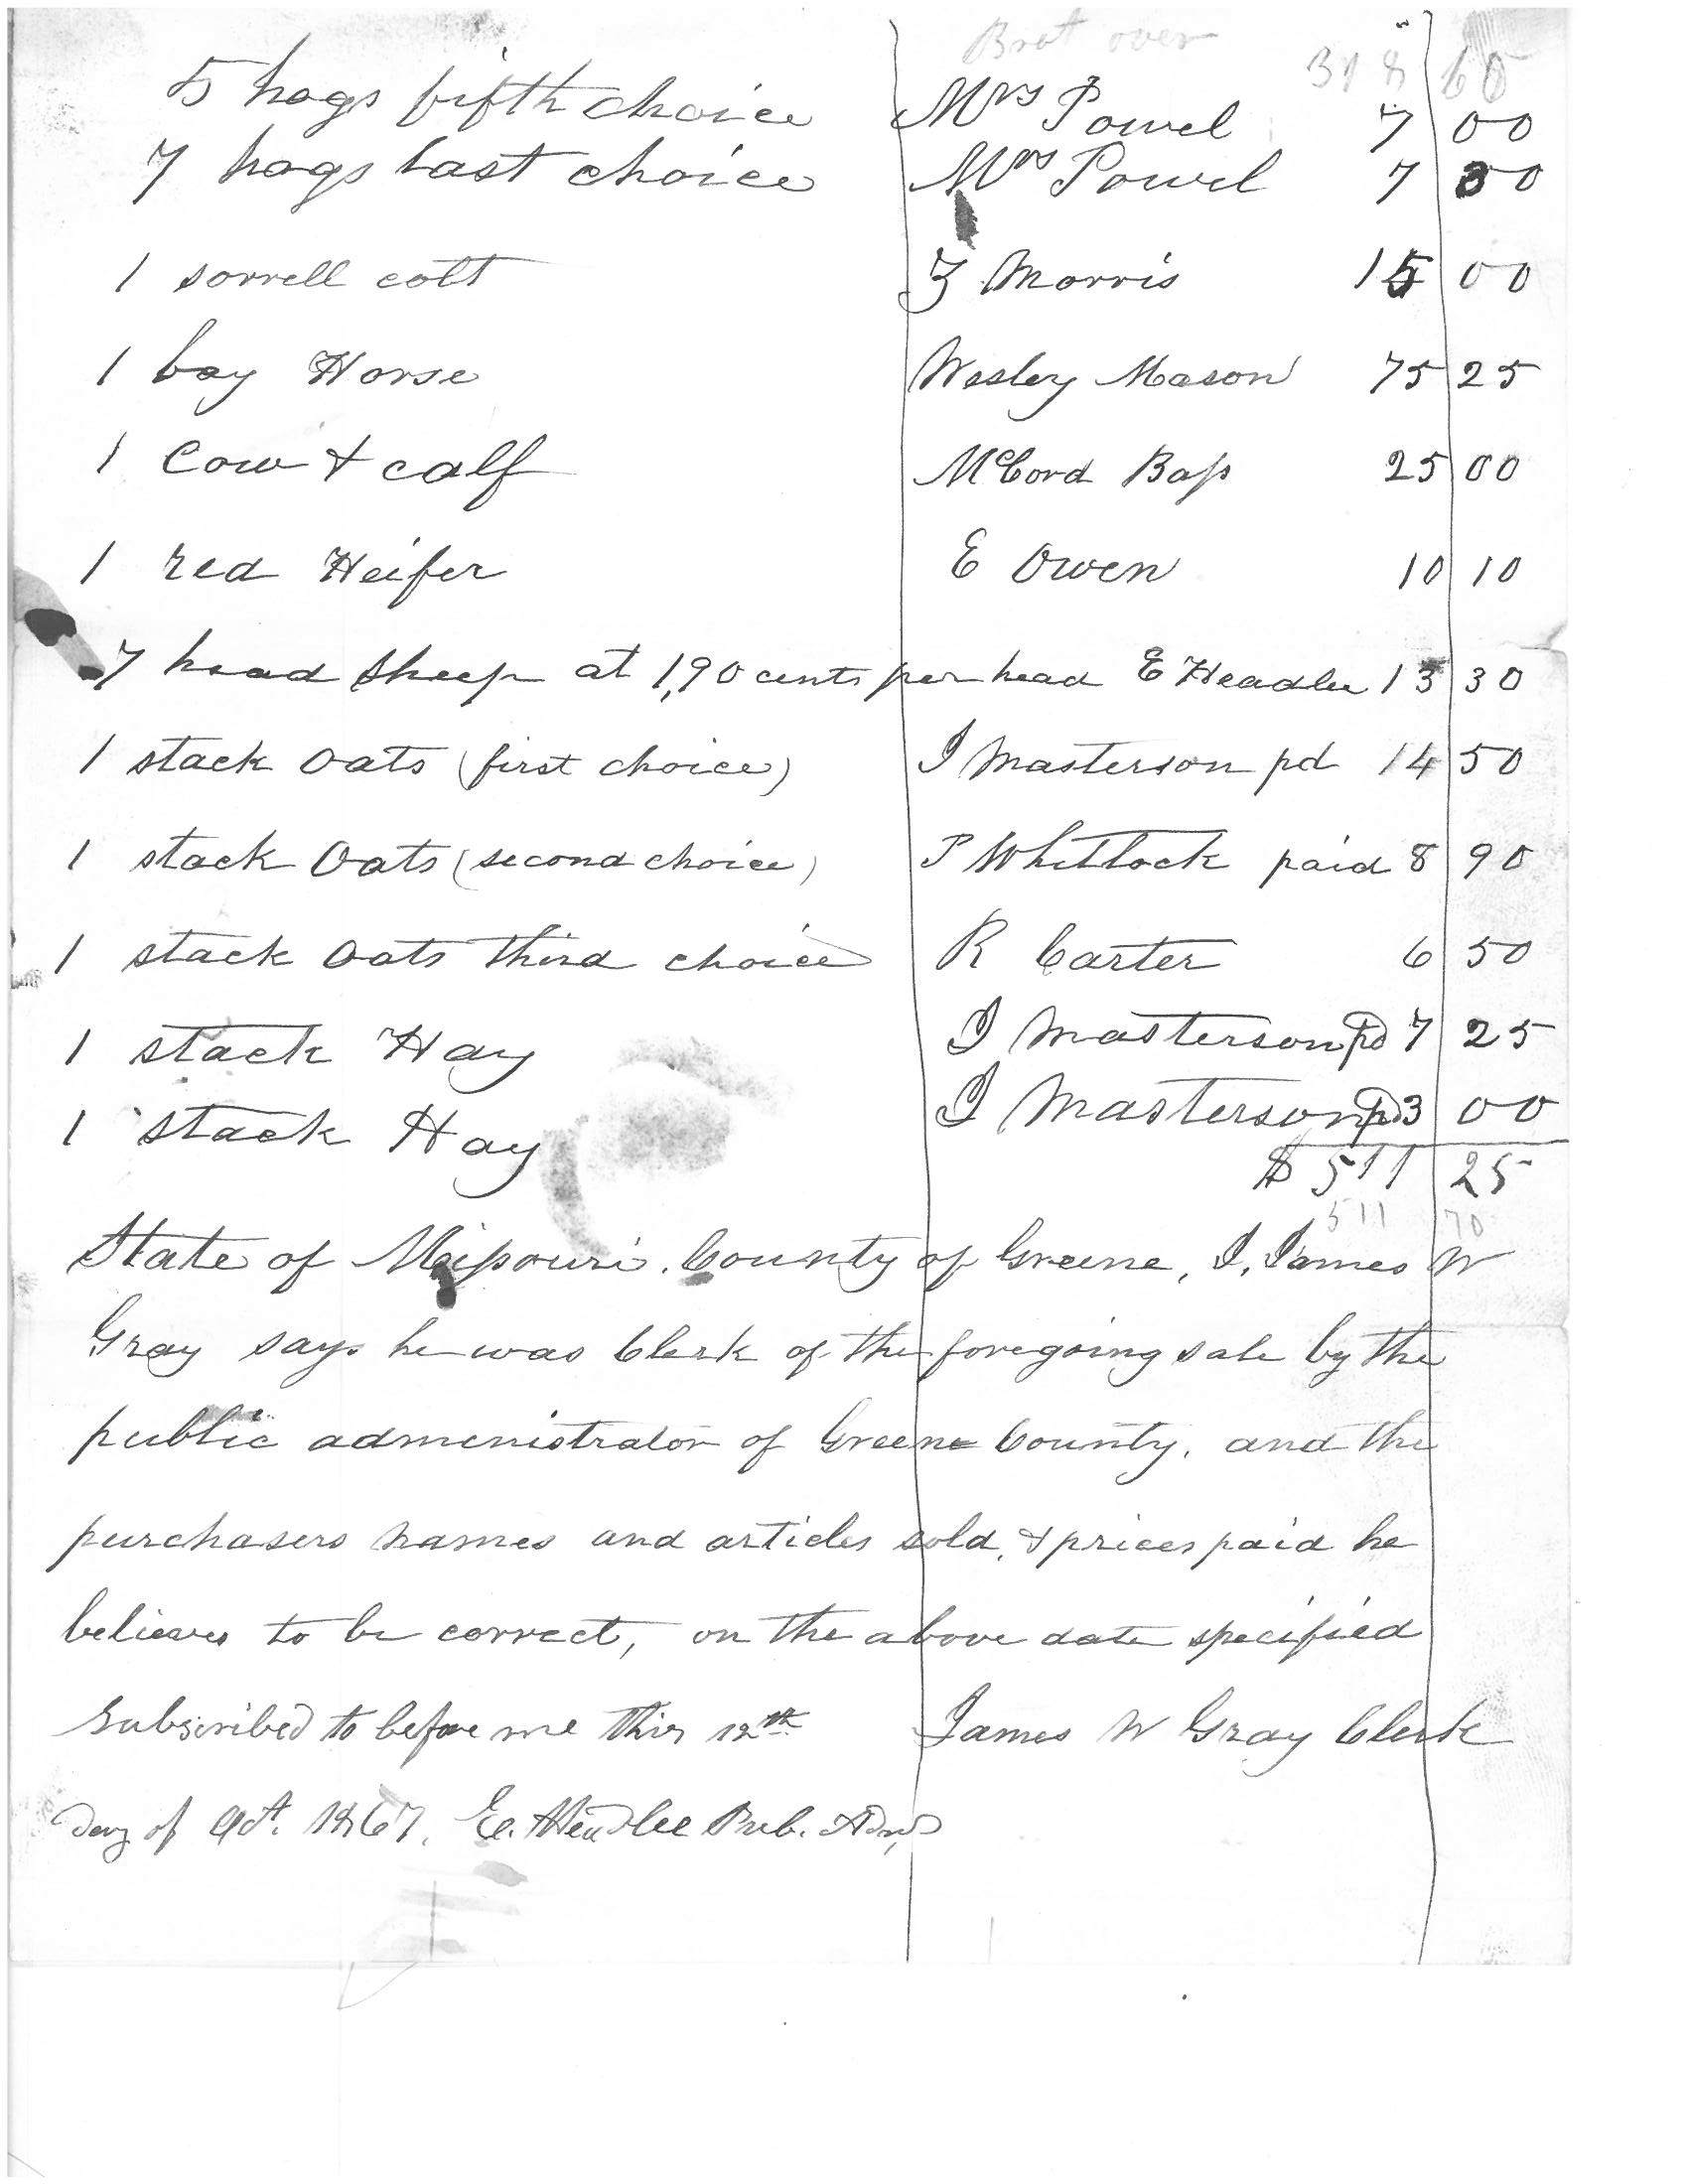 Brot over 318 60
5 hogs fifth choice Mrs Powel 7 00
7 hogs last choice Mrs Powel 7 30
1 sorrell colt Z Morris 15 00
1 bay Horse Wesley Mason 75 25
1 Cow & calf McCord Bass 25 00
1 red Heifer E Owen 10 10
7 head sheep at 1,90 cents per head E Headlee 13 30
1 stack Oats (first choice) I Masterson pd 14 50
1 stack Oats (second choice) P Whitlock paid 8 90
1 stack Oats third choice R Carter 6 50
1 stack Hay I Masterson pd 7 25
1 stack Hay I Masterson pd 3 00
$ 511 25
511 70
State of Missouri. County of Greene, I, James W
Gray says he was Clerk of the foregoing sale by the
public administrator of Greene County, and the
purchasers names and articles sold, & prices paid he
believes to be correct, on the above date specified
Subscribed to before me this 12th James W Gray Clerk
day of Oct. 1867, E. Headlee Pub. Admr